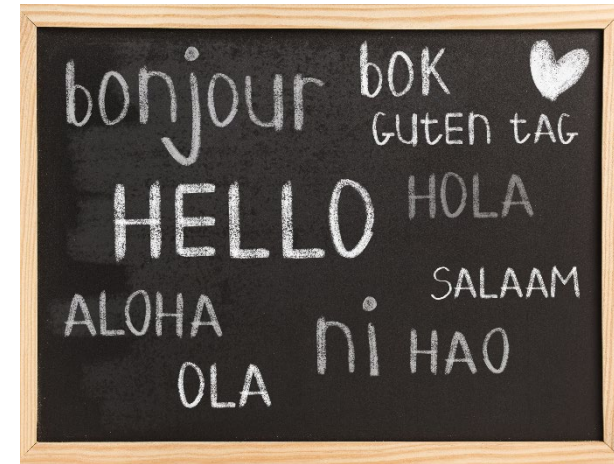 bonjour
bOK
GUtEn tAG
HELLO
HOLA
SALAAM
ALOHA
ni HAO
OLA